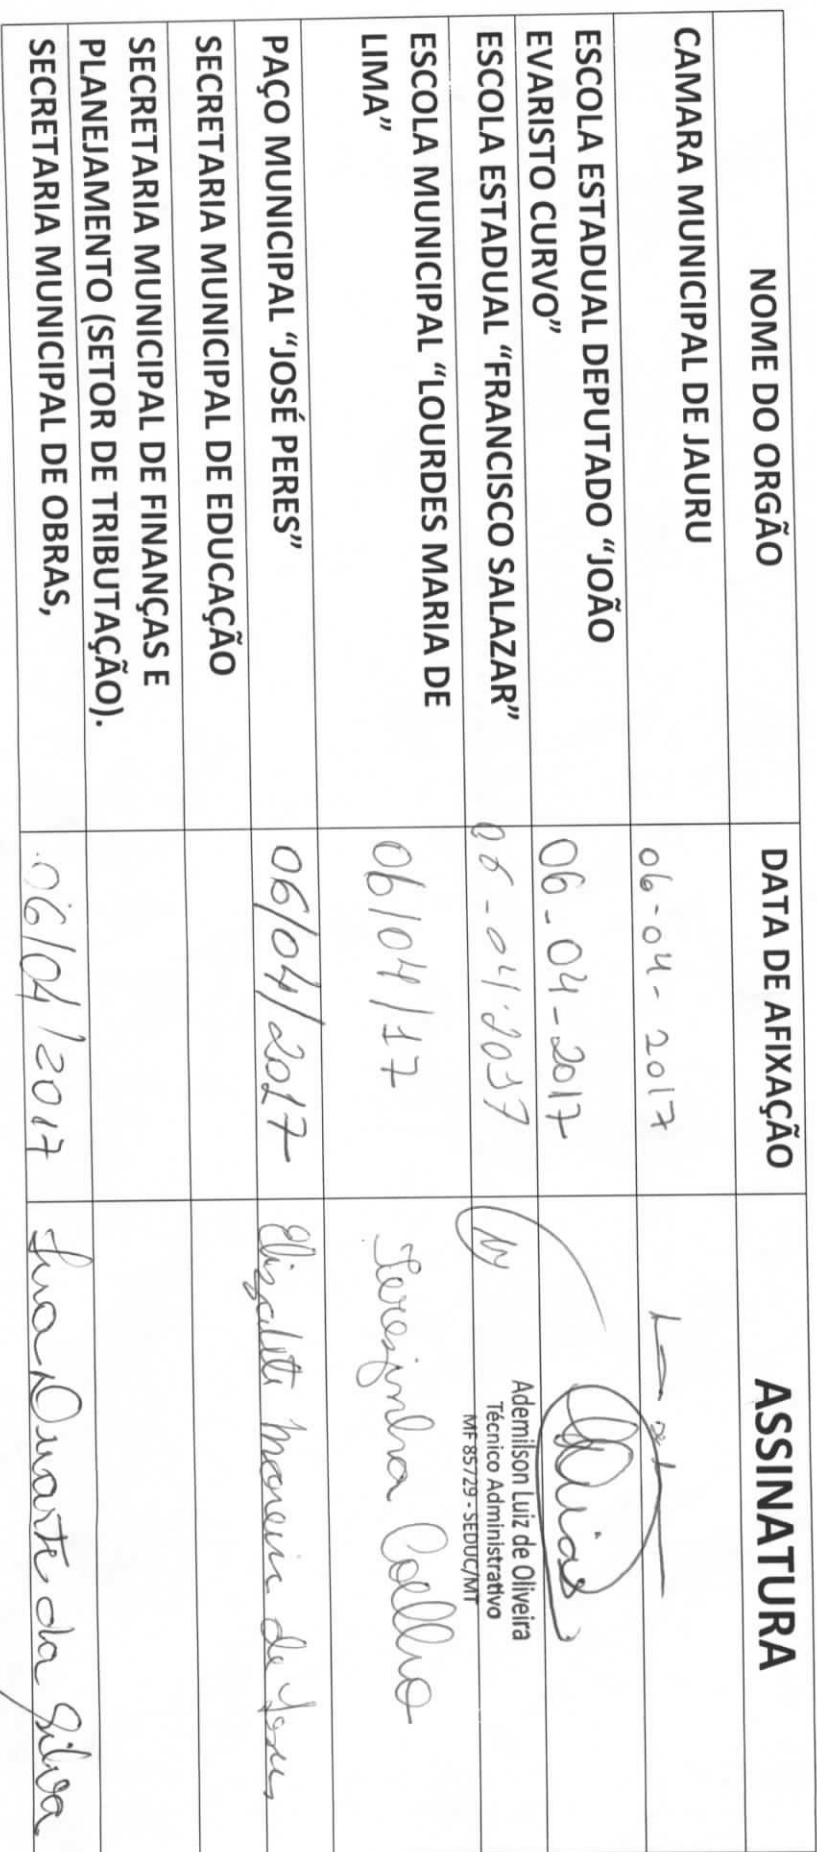 NOME DO ORGÃO DATA DE AFIXAÇÃO ASSINATURA
CAMARA MUNICIPAL DE JAURU 06-04-2017
ESCOLA ESTADUAL DEPUTADO "JOÃO
EVARISTO CURVO" 06-04-2017
ESCOLA ESTADUAL "FRANCISCO SALAZAR" 06-04-2017
Ademilson Luiz de Oliveira
Técnico Administrativo
MF 85729 - SEDUC/MT
ESCOLA MUNICIPAL "LOURDES MARIA DE
LIMA" 06/04/17 Terezinha Coelho
PAÇO MUNICIPAL "JOSÉ PERES" 06/04/2017 Elizabete Moreira de Jesus
SECRETARIA MUNICIPAL DE EDUCAÇÃO
SECRETARIA MUNICIPAL DE FINANÇAS E
PLANEJAMENTO (SETOR DE TRIBUTAÇÃO).
SECRETARIA MUNICIPAL DE OBRAS, 06/04/2017 Duarte da Silva